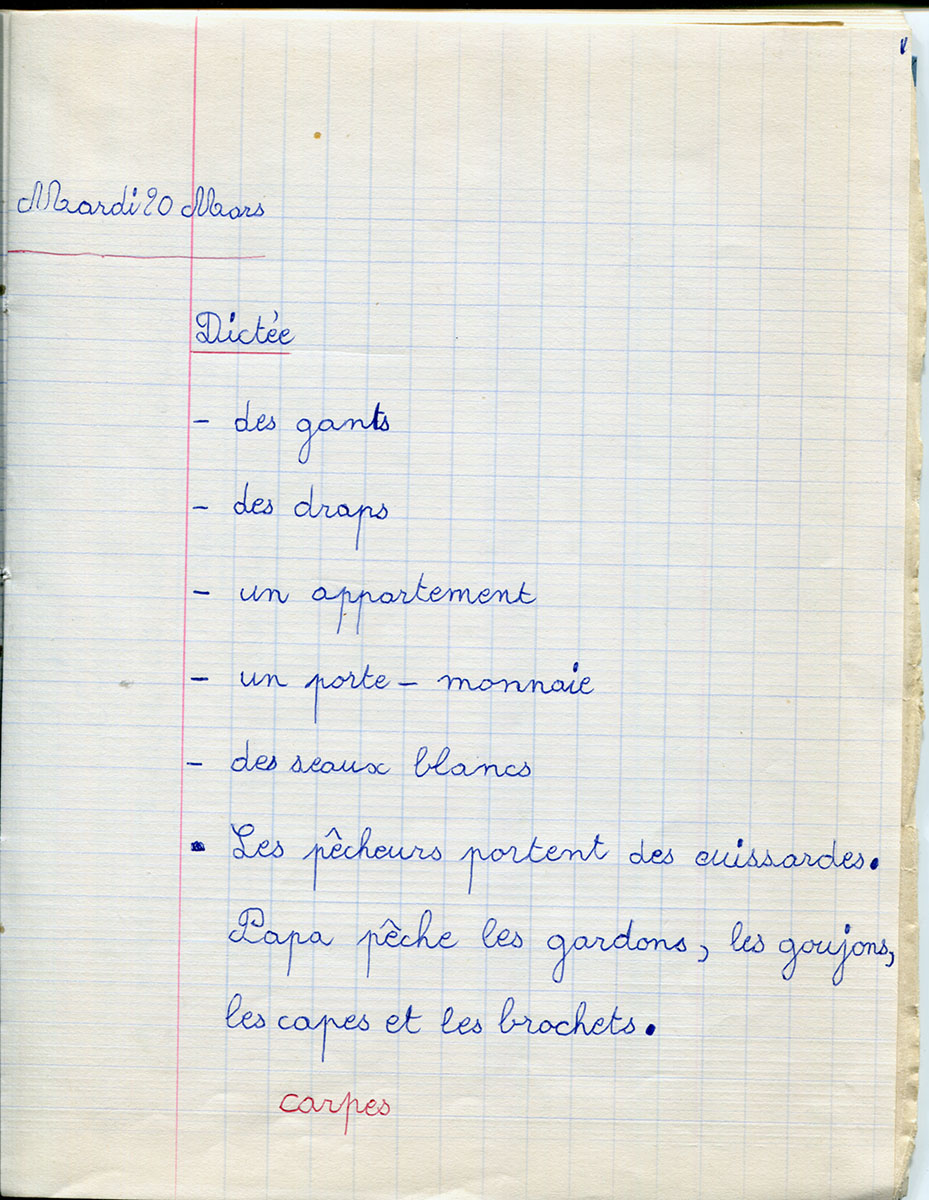 Mardi 20 Mars
Dictée
- des gants
- des draps
- un appartement
- un porte - monnaie
- des seaux blancs
• Les pêcheurs portent des cuissardes.
Papa pêche les gardons, les goujons,
les capes et les brochets.
carpes